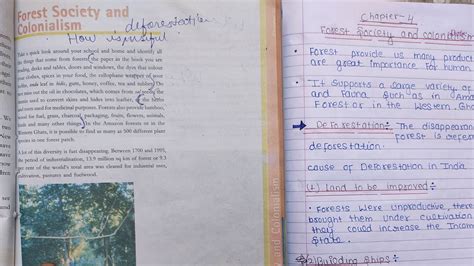 Forest Society and
Colonialism
deforestation
How is
Take a quick look around your school and home and identify all
the things that come from forests: the paper in the book you are
reading, desks and tables, doors and windows, the dyes that colour
your clothes, spices in your food, the cellophane wrapper of your
toffee, tendu leaf in bidis, gum, honey, coffee, tea and rubber. Do
not miss out the oil in chocolates, which comes from sal seeds, the
tannin used to convert skins and hides into leather, or the herbs
and roots used for medicinal purposes. Forests also provide bamboo,
wood for fuel, grass, charcoal, packaging, fruits, flowers, animals,
birds and many other things. In the Amazon forests or in the
Western Ghats, it is possible to find as many as 500 different plant
species in one forest patch.
A lot of this diversity is fast disappearing. Between 1700 and 1995,
the period of industrialisation, 13.9 million sq km of forest or 9.3
per cent of the world's total area was cleared for industrial uses,
cultivation, pastures and fuelwood.
y and Colonialism
Chapter-4
Forest society and colonialism
• Forest provide us many product
are great importance for human
• It supports a large variety of
and fauna such as in Ama
Forest or in the Western Gha
Deforestation÷ The disappearan
forest is refer
deforestation.
cause of Deforestation in India
(1) land to be improved÷
• Forests were unproductive, there
brought them under cultivation
they could increase the Income
State.
(2) Building Ships÷